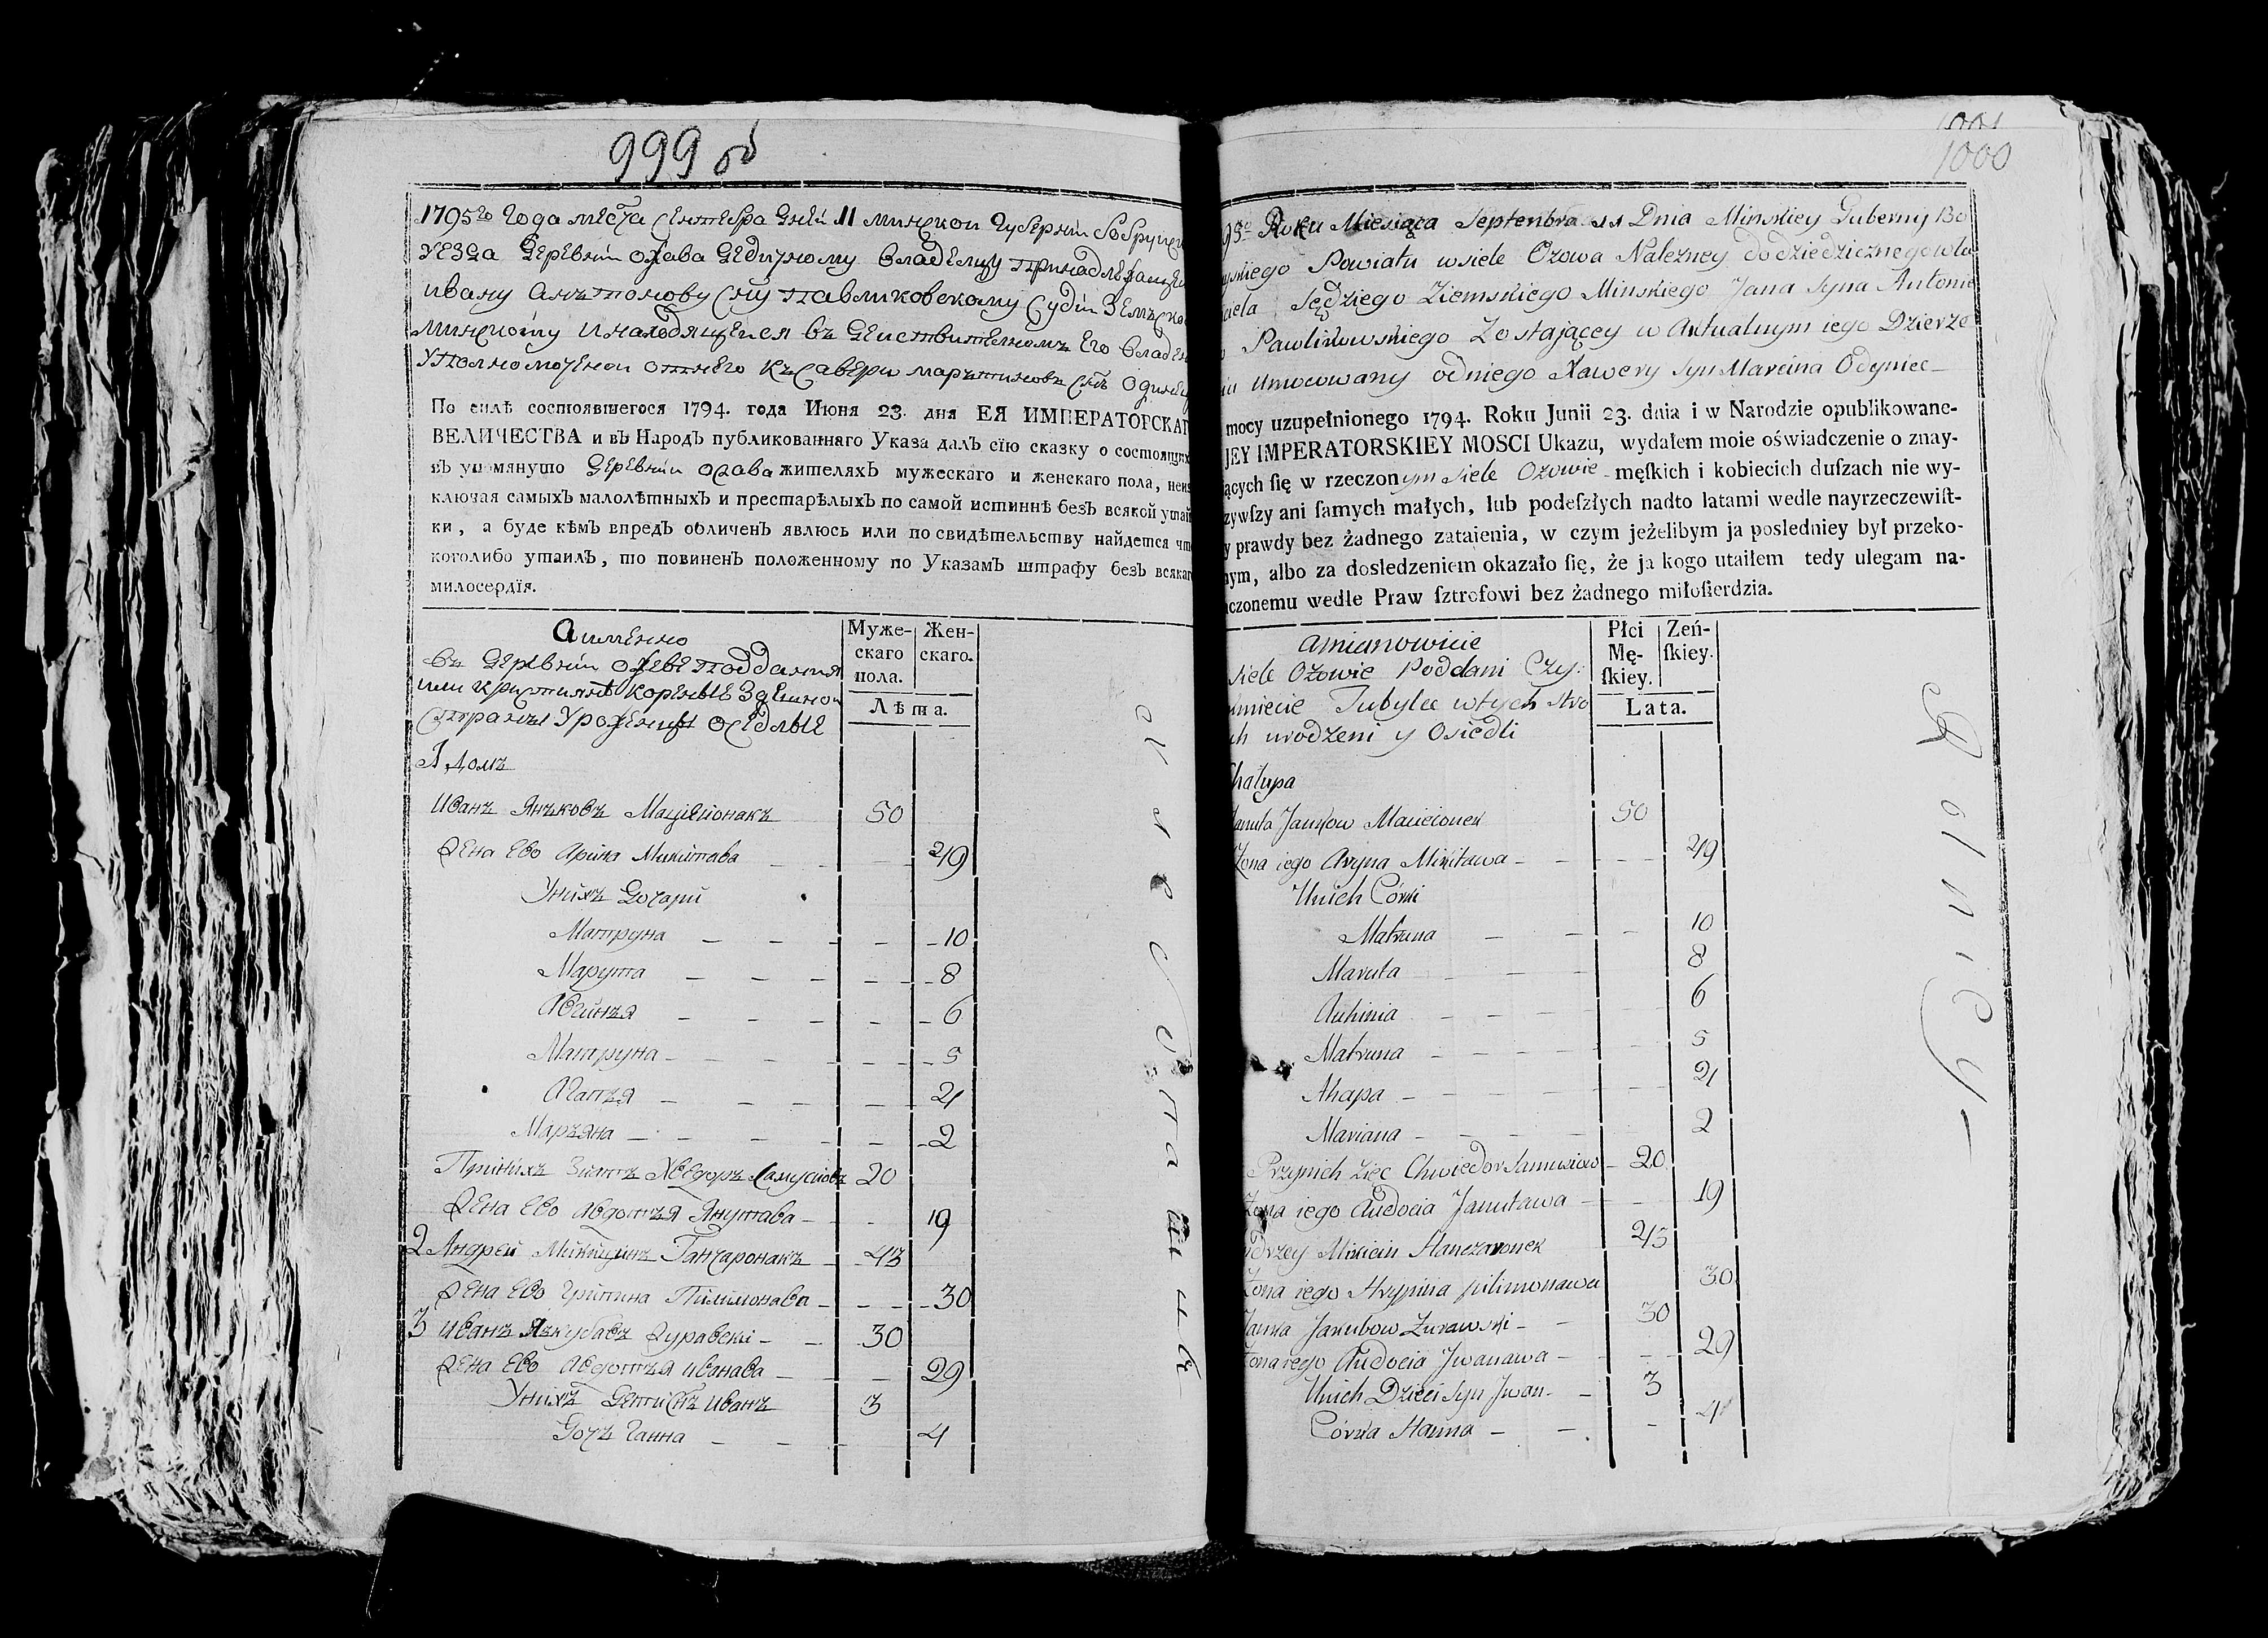 999 об
1795го Года мѣсѧца Сентебра дней 11 минской губерніи бобруйск
уезда деревни ожава дедичному владелцу принадлежащей
ивану антонову сну павликовскому судіи земско
минскому инаходящейся въ действителномъ его владен
уполномоченой отнего ксавери мартиновъ снъ одинец
По силѣ состоявшегося 1794. года Июня 23. дня ЕЯ ИМПЕРАТОРСКАГ
ВЕЛИЧЕСТВА и въ Народъ публикованнаго Указа далъ сїю сказку о состоящихъ
въ упомянушо деревни ожава жителяхъ мужескаго и женскаго пола, неис
ключая самыхъ малолѣтныхъ и престарѣлыхъ по самой истиннѣ безъ всякой утай
ки, а буде кѣмъ впредъ обличенъ явлюсь или по свидѣтельству найдется что
коголибо утаилъ, то повиненъ положенному по Указамъ штрафу безъ всякаго
милосердїя.
Аименно
въ деревни ожеве поддания
или кристияне кореные здешной
страны уроженцы оседлые
Муже-
скаго
пола.
Жен-
скаго.
Лѣта.
1 домъ
Иванъ Янъковъ Мацейонакъ 50
Жена ево Арина Микитава 49
Унихъ дочари
Матруна 10
Марута 8
Авгинья 6
Матруна 5
Агапья 4
Марьяна 2
Принихъ Зять Хведоръ Самусиовъ 20
Жена ево Авдотья Янутава 19
2 Андрей Микицинъ Ганчаронакъ 43
Жена ево Грипина Пилимонава 30
3 иванъ Якубавъ Журавскі 30
Жена ево Авдотья иванава 29
Унихъ дети снъ иванъ 3
дочъ Ганна 4
1001
1000
95o Roku Miesiąca Septenbra 11 Dnia Minskiey Gubernij Bo
yskiego Powiatu wsiele Ozowa Należney dodziedzicznegowla
ciela Sędziego Ziemskiego Minskiego Jana Syna Antonie
o Pawlikowskiego Zostającey w Aktualnym iego Dzierże
iu Umocowany odniego Xawery Syn Marcina Odyniec
mocy uzupełnionego 1794. Roku Junii 23. dnia i w Narodzie opublikowane-
JEY IMPERATORSKIEY MOSCI Ukazu, wydałem moie oświadczenie o znay-
ących ſię w rzeczonym siele Ozowie męſkich i kobiecich duſzach nie wy-
zywſzy ani ſamych małych, lub podeſzłych nadto latami wedle nayrzeczewiſt-
y prawdy bez żadnego zataienia, w czym jeżelibym ja posledniey był przeko-
nym, albo za dosledzeniem okazało ſię, że ja kogo utaiłem tedy ulegam na-
aczonemu wedle Praw ſztrofowi bez żadnego miłoſierdzia.
amianowicie
siele Ozowie Poddani Czy:
mniecie Tubylce wtych stro
ch urodzeni y Osiedli
Płci
Mę-
ſkiey.
Zeń-
ſkiey.
Lata.
Chałupa
Januta Jankow Macieionek 50
Żona iego Aryna Mikitawa 49
Unich Córki
Matruna 10
Maruta 8
Auhinia 6
Matruna 5
Ahapa 4
Mariana 2
Przynich Zięc Chwiedor Samusiow 20
Żona iego Audocia Janutawa 19
ndrzey Mikicin Hanczaronek 43
Żona iego Hrypina pilimonawa 30
Janka Jakubow Zurawski 30
Żona iego Audocia Jwanawa 29
Unich Dzieci Syn Jwan 3
Córka Hanna 4